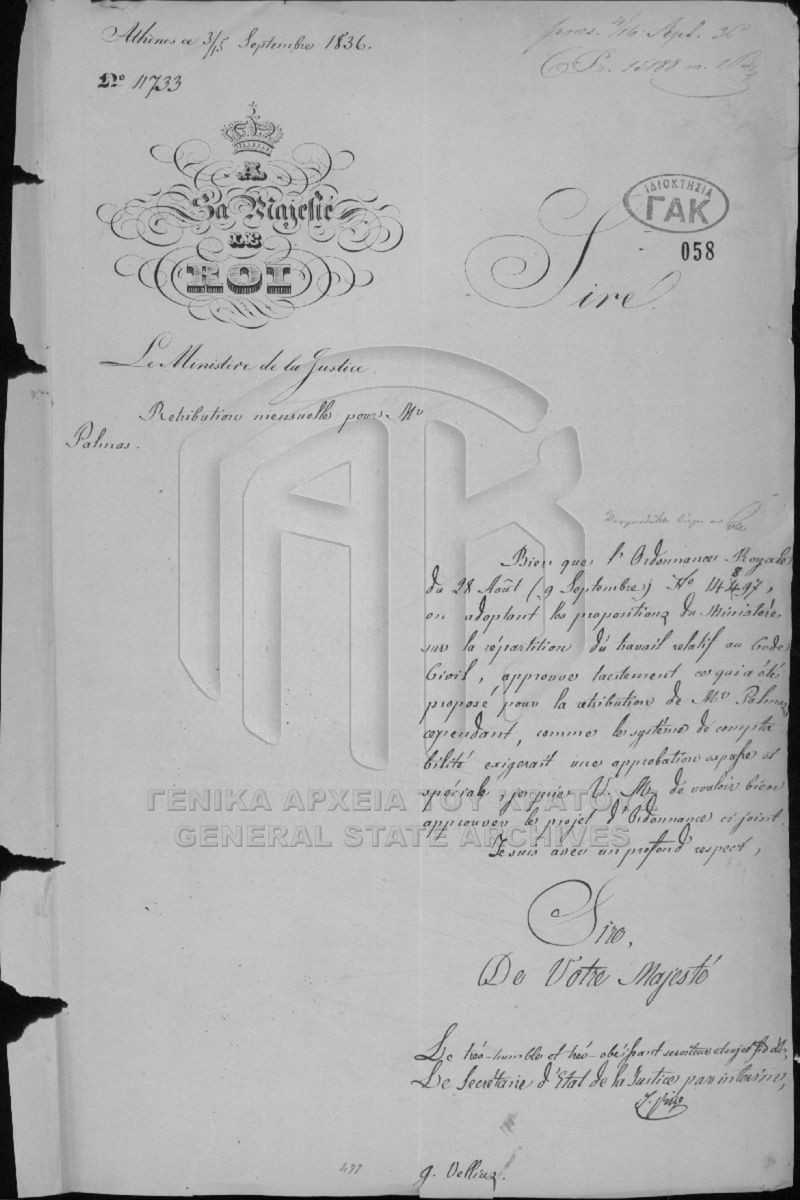 Athènes ce 3/15 Septembre 1836.
No 11733
A
Sa Majesté
LE
ROI
ΙΔΙΟΚΤΗΣΙΑ
ΓΑΚ
058
Sire
Le Ministère de la Justice.
Rétribution mensuelle pour Mr
Palmas.
Bien que l'Ordonnance Royale
du 28 Août (9 Septembre) No
en adoptant les propositions du Ministère
sur la répartition du travail relatif au Code
Civil, approuve tacitement ce qui a été
proposé pour la rétribution de Mr Palmas
cependant, comme le système de compta
bilité exigerait une approbation expresse et
spéciale, je prie V. M. de vouloir bien
approuver le projet d'Ordonnance ci joint.
Je suis avec un profond respect,
ΓΕΝΙΚΑ ΑΡΧΕΙΑ ΤΟΥ ΚΡΑΤΟΥΣ
GENERAL STATE ARCHIVES
Sire,
De Votre Majesté
Le très-humble et très-obéissant serviteur et sujet
Le Secrétaire d'Etat de la Justice par intérim,
477